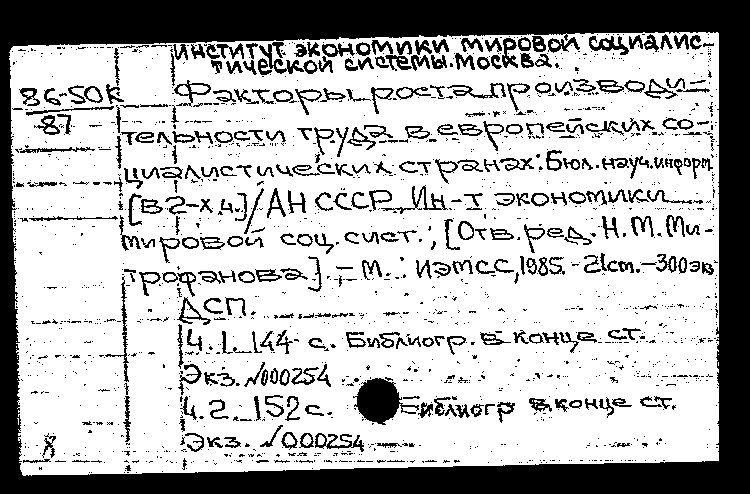 институт экономики мировой социалис-
тической системы. Москва.
86-50к Факторы роста производи-
87 тельности труда в европейских со-
циалистических странах: Бюл. науч. информ
[в 2-х ч.]/АН СССР, Ин-т экономики
мировой соц. сист.; [Отв. ред. Н.М. Ми-
трофанова]. - М.: ИЭМСС, 1985. - 21 см. - 300 экз
ДСП.
Ч.1. 144 с. Библиогр. в конце ст.
Экз. №000254
Ч.2. 152 с. Библиогр в конце ст.
8 Экз. №000254